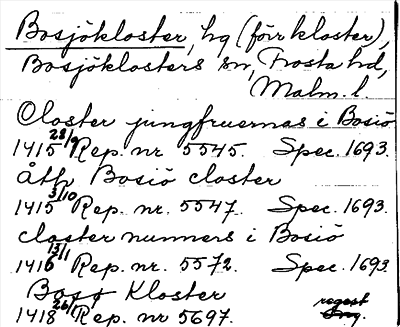 Bosjökloster, hg (förr kloster),
Bosjöklosters sn, Frosta hd,
Malm. l.
Closter jungfruernas i Bosiö
1415 28/9 Rep. nr 5545. Spec. 1693.
Åth Bosiö closter
1415 3/10 Rep. nr. 5547. Spec. 1693.
closter nunners i Bosiö
1416 13/1 Rep. nr. 5572. Spec. 1693.
Bosø Kloster
1418 26/ Rep. nr 5697. regest